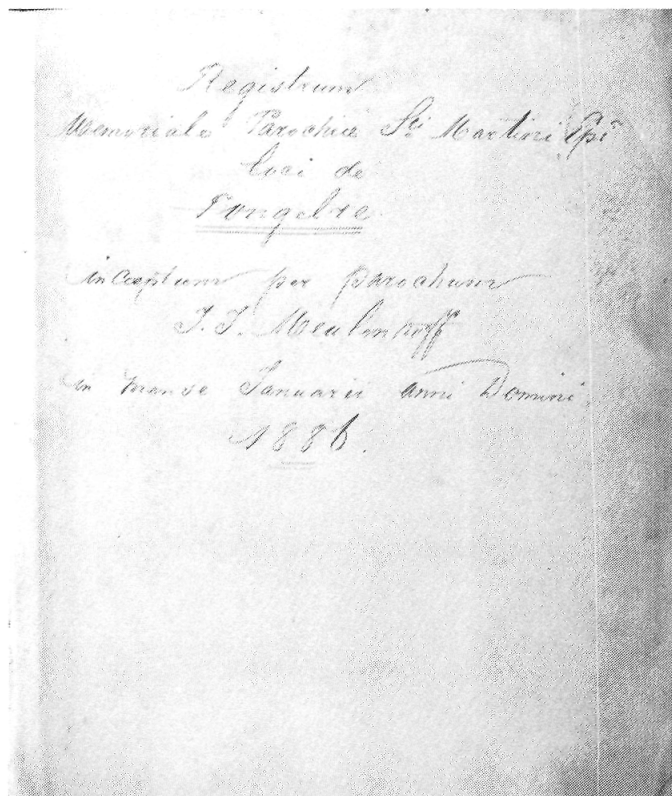 Registrum
Memoriale Parochiae Sti Martini Epi
loci de
Tongelre
inceptum per parochum
J. J. Meulenhoff
in mense Januarii anni Domini
1886.